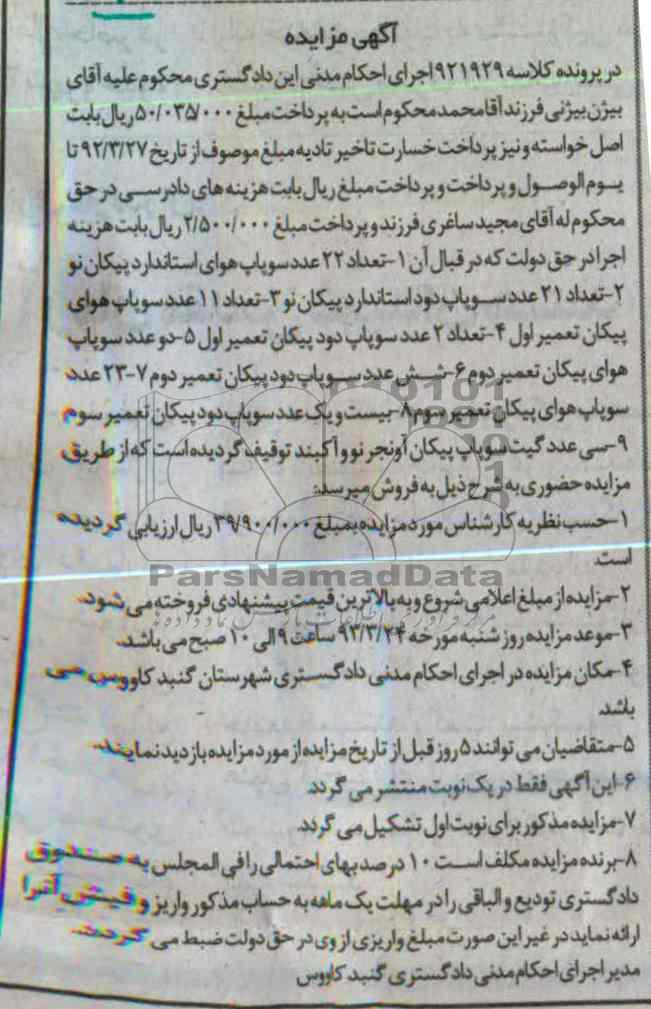 آگهی مزایده
در پرونده کلاسه ۹۲۱۹۲۹ اجرای احکام مدنی این دادگستری محکوم علیه آقای
بیژن بیژنی فرزند آقا محمد محکوم است به پرداخت مبلغ ۵۰/۰۳۵/۰۰۰ ریال بابت
اصل خواسته و نیز پرداخت خسارت تاخیر تادیه مبلغ موصوف از تاریخ ۹۲/۳/۲۷ تا
یوم الوصول و پرداخت و پرداخت مبلغ ریال بابت هزینه های دادرسی در حق
محکوم له آقای مجید ساغری فرزند و پرداخت مبلغ ۲/۵۰۰/۰۰۰ ریال بابت هزینه
اجرا در حق دولت که در قبال آن ۱-تعداد ۲۲ عدد سوپاپ هوای استاندارد پیکان نو
۲-تعداد ۲۱ عدد سوپاپ دود استاندارد پیکان نو ۳-تعداد ۱۱ عدد سوپاپ هوای
پیکان تعمیر اول ۴-تعداد ۲ عدد سوپاپ دود پیکان تعمیر اول ۵-دو عدد سوپاپ
هوای پیکان تعمیر دوم ۶-شش عدد سوپاپ دود پیکان تعمیر دوم ۷-۲۳ عدد
سوپاپ هوای پیکان تعمیر سوم ۸-بیست و یک عدد سوپاپ دود پیکان تعمیر سوم
۹-سی عدد گیت سوپاپ پیکان آونجر نو و آکبند توقیف گردیده است که از طریق
مزایده حضوری به شرح ذیل به فروش میرسد:
۱-حسب نظریه کارشناس مورد مزایده بمبلغ ۳۹/۹۰۰/۰۰۰ ریال ارزیابی گردیده
است.
ParsNamadData
۲-مزایده از مبلغ اعلامی شروع و به بالاترین قیمت پیشنهادی فروخته می شود.
۳-موعد مزایده روز شنبه مورخه ۹۳/۳/۲۴ ساعت ۹ الی ۱۰ صبح می باشد.
۴-مکان مزایده در اجرای احکام مدنی دادگستری شهرستان گنبد کاووس می
باشد.
۵-متقاضیان می توانند ۵ روز قبل از تاریخ مزایده از مورد مزایده بازدید نمایند.
۶-این آگهی فقط در یک نوبت منتشر می گردد.
۷-مزایده مذکور برای نوبت اول تشکیل می گردد.
۸-برنده مزایده مکلف است ۱۰ درصد بهای احتمالی را فی المجلس به صندوق
دادگستری تودیع و الباقی را در مهلت یک ماهه به حساب مذکور واریز و فیش آنرا
ارائه نماید در غیر این صورت مبلغ واریزی از وی در حق دولت ضبط می گردد.
مدیر اجرای احکام مدنی دادگستری گنبد کاووس